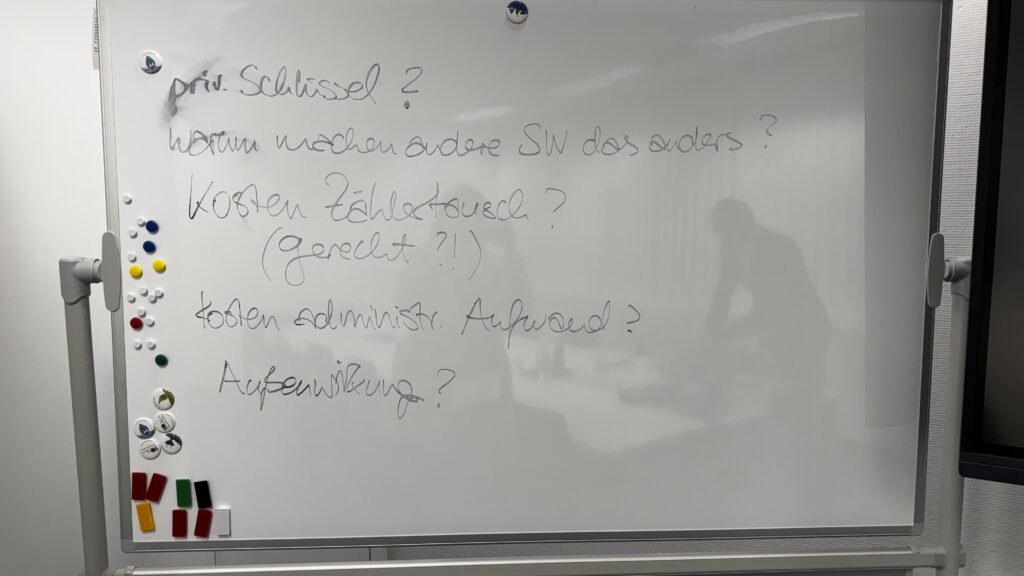 priv. Schlüssel ?
warum machen andere SW das anders ?
Kosten Zählertausch ?
(gerecht ?!)
Kosten administr. Aufwand ?
Außenwirkung ?